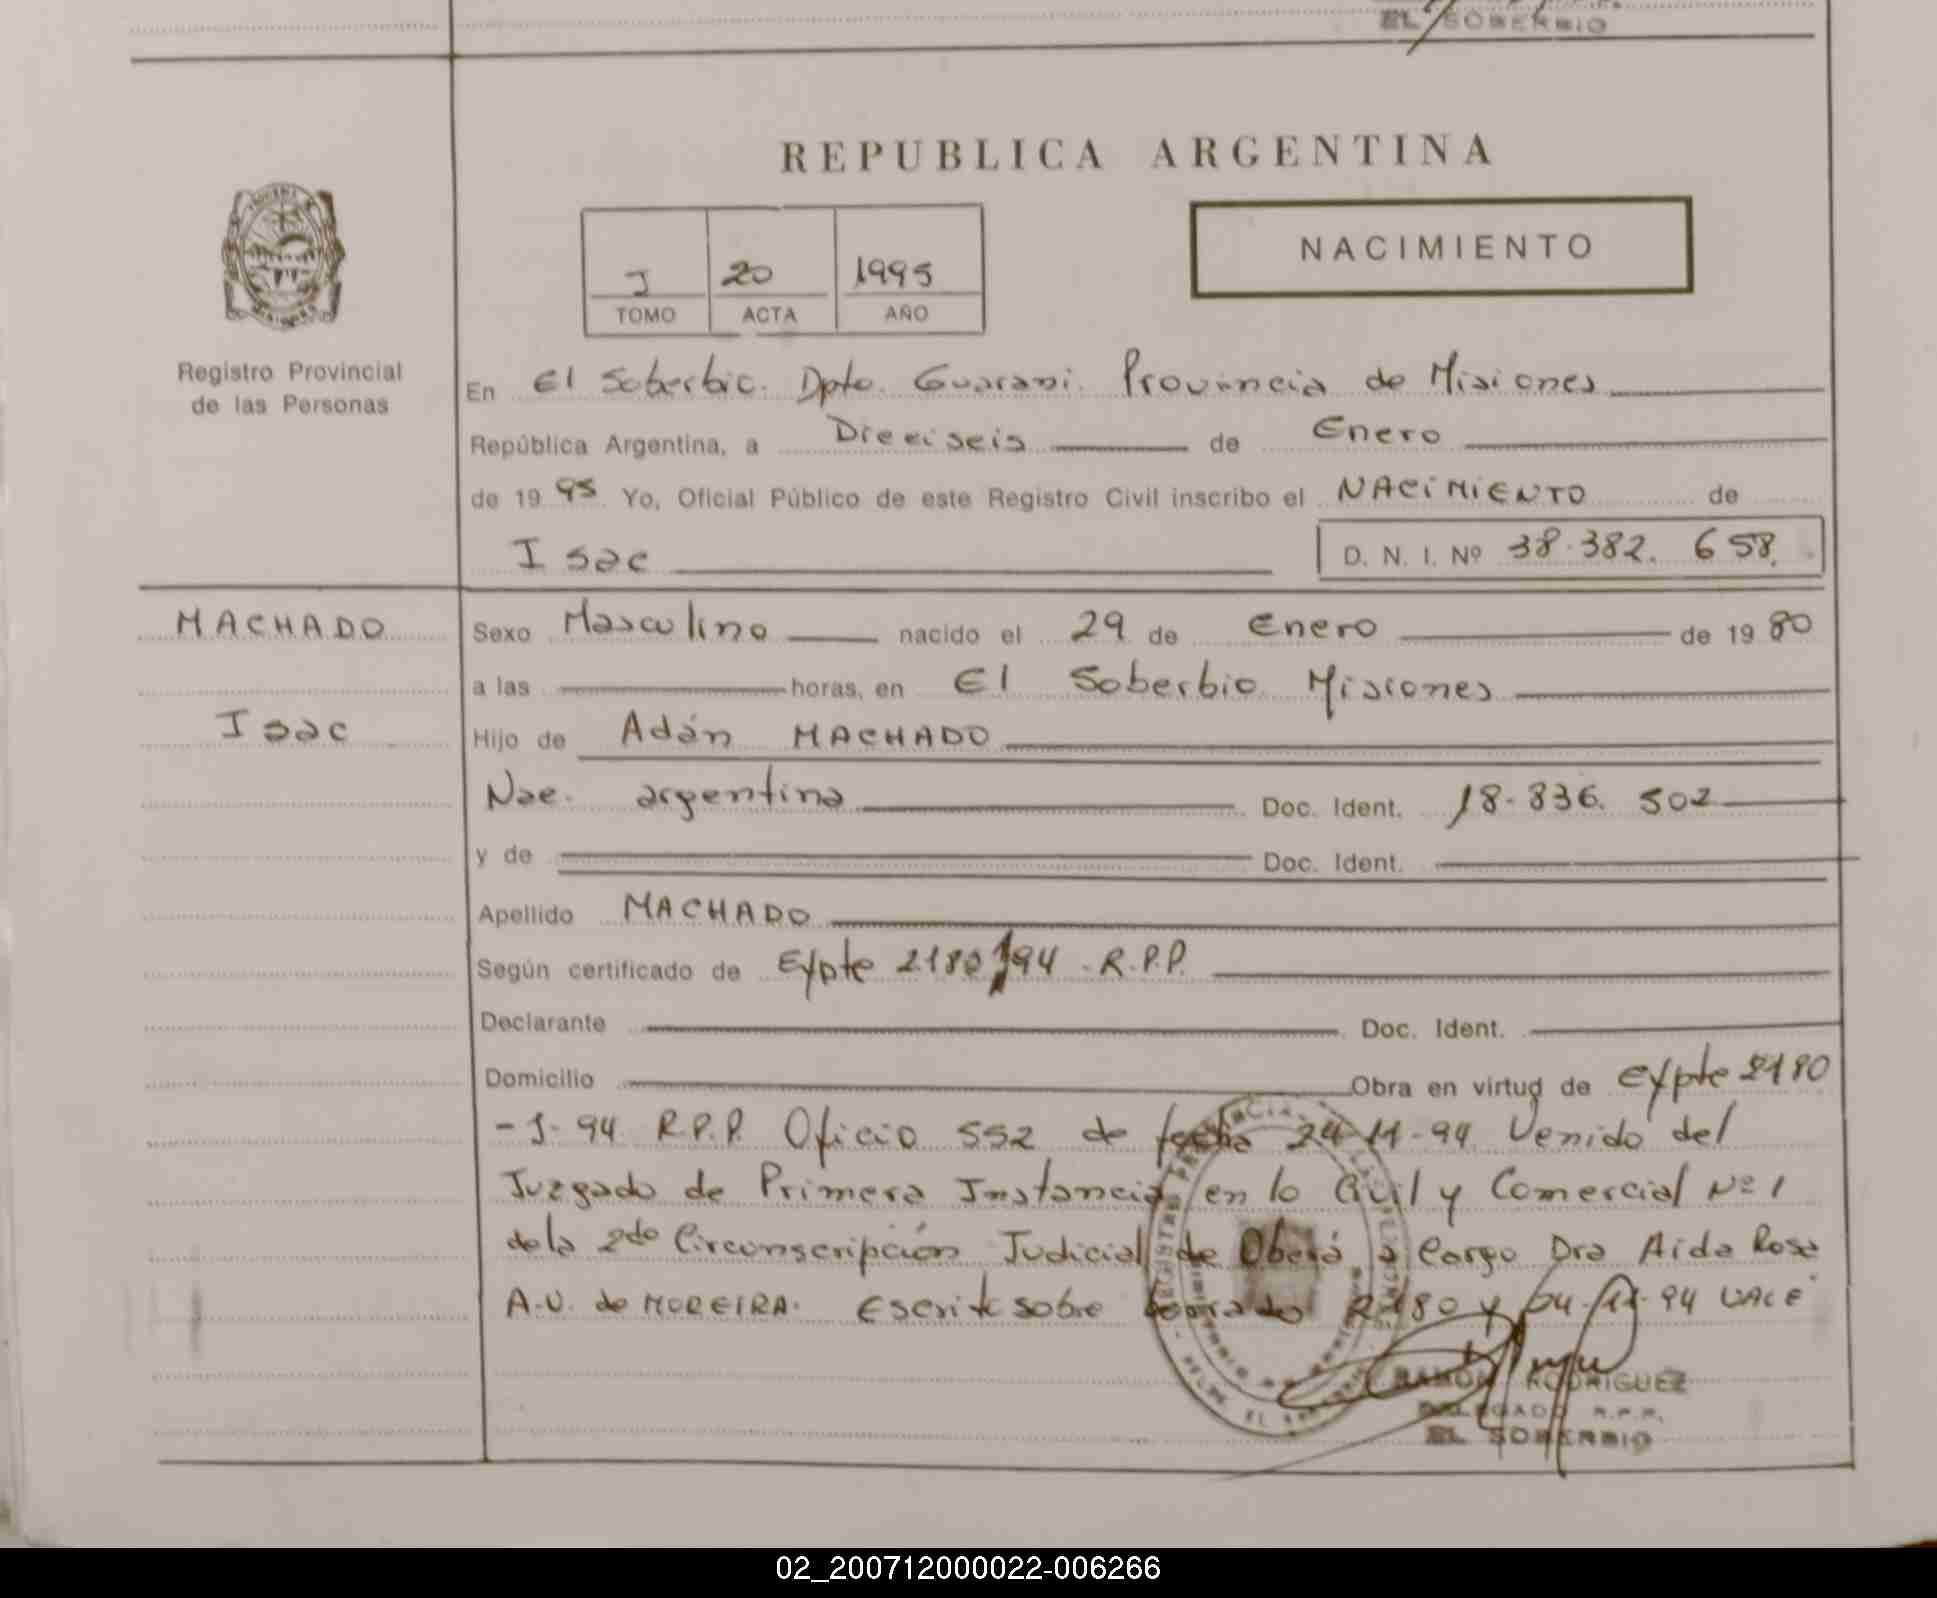 EL SOBERBIO
REPUBLICA ARGENTINA
NACIMIENTO
I 20 1995
TOMO ACTA AÑO
Registro Provincial
de las Personas
En El Soberbio. Dpto. Guarani. Provincia de Misiones
República Argentina, a Dieciseis de Enero
de 1995 Yo, Oficial Público de este Registro Civil inscribo el NACIMIENTO de
Isac D. N. I. Nº 38.382.658.
MACHADO
Isac
Sexo Masculino nacido el 29 de Enero de 1980
a las horas, en El Soberbio Misiones
Hijo de Adán MACHADO
Nac. argentina Doc. Ident. 18.836.502
y de Doc. Ident.
Apellido MACHADO
Según certificado de Expte 2180/94 - R.P.P.
Declarante Doc. Ident.
Domicilio Obra en virtud de expte 2180
-J-94 R.P.P. Oficio 552 de fecha 24-11-94 Venido del
Juzgado de Primera Instancia en lo Civil y Comercial Nº 1
de la 2do Circunscripción Judicial de Oberá a Cargo Dra Aida Rosa
A.U. de MOREIRA. Escrito sobre borrado 2180 y 04-11-94 VALE
RAMON RODRIGUEZ
DELEGADO R.P.P.
EL SOBERBIO
02_200712000022-006266